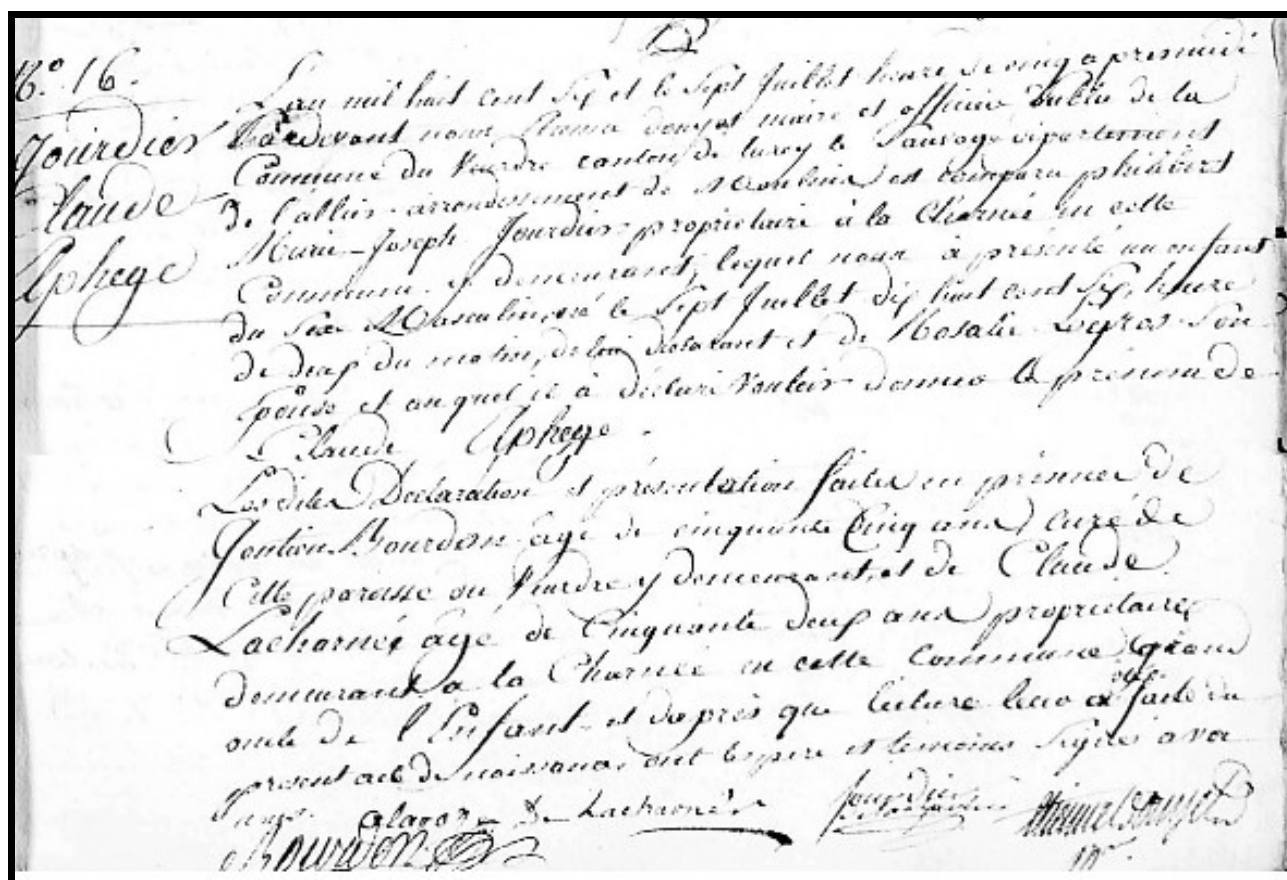 N.º 16.
Jourdier
Claude
Alphege
L'an mil huit cent six et le sept Juillet heure de cinq apres midi
Pardevant nous maire et officier public de la
Commune du Veurdre canton de Lurcy le Sauvage departement
de l'allier arrondissement de Moulins est comparu philibert
Marie-Joseph Jourdier proprietaire à la Charnée en cette
Commune y demeurant, lequel nous à présenté un enfant
du sexe Masculin, né le sept Juillet dix huit cent six, heure
de deux du matin, de lui déclarant et de Rosalie son
épouse et auquel il à déclaré vouloir donner le prénom de
Claude Alphege.
Lesdites Déclaration et présentation faites en présence de
Gontion Bourdon agé de cinquante cinq ans curé de
Cette paroisse du Veurdre y demeurant, et de Claude
Lacharnée agé de Cinquante deux ans proprietaire
demeurant a la Charnée en cette commune grand
oncle de l'Enfant et daprès que lecture leur a été faite du
present acte de naissance, ont le pere et temoins signés avec
nous. De Lacharnée Jourdier
Bourdon